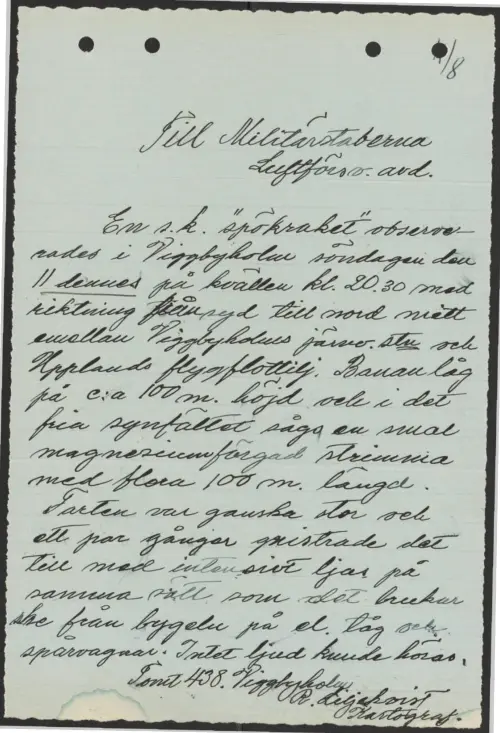 /8
Till Militärstaberna
Luftförsv. avd.
En s.k. "spökraket" observe-
rades i Viggbyholm söndagen den
11 dennes på kvällen kl. 20.30 med
riktning från syd till nord mitt
emellan Viggbyholms järnv. stn och
Upplands flygflottilj. Banan låg
på c:a 100 m. höjd och i det
fria synfältet sågs en smal
magnesiumfärgad strimma
med flera 100 m. längd.
Farten var ganska stor och
ett par gånger gnistrade det
till med intensivt ljus på
samma sätt som det brukar
ske från bygeln på el. tåg och
spårvagnar. Intet ljud kunde höras.
Tomt 438. Viggbyholm
R. Liljekvist
Kartograf.